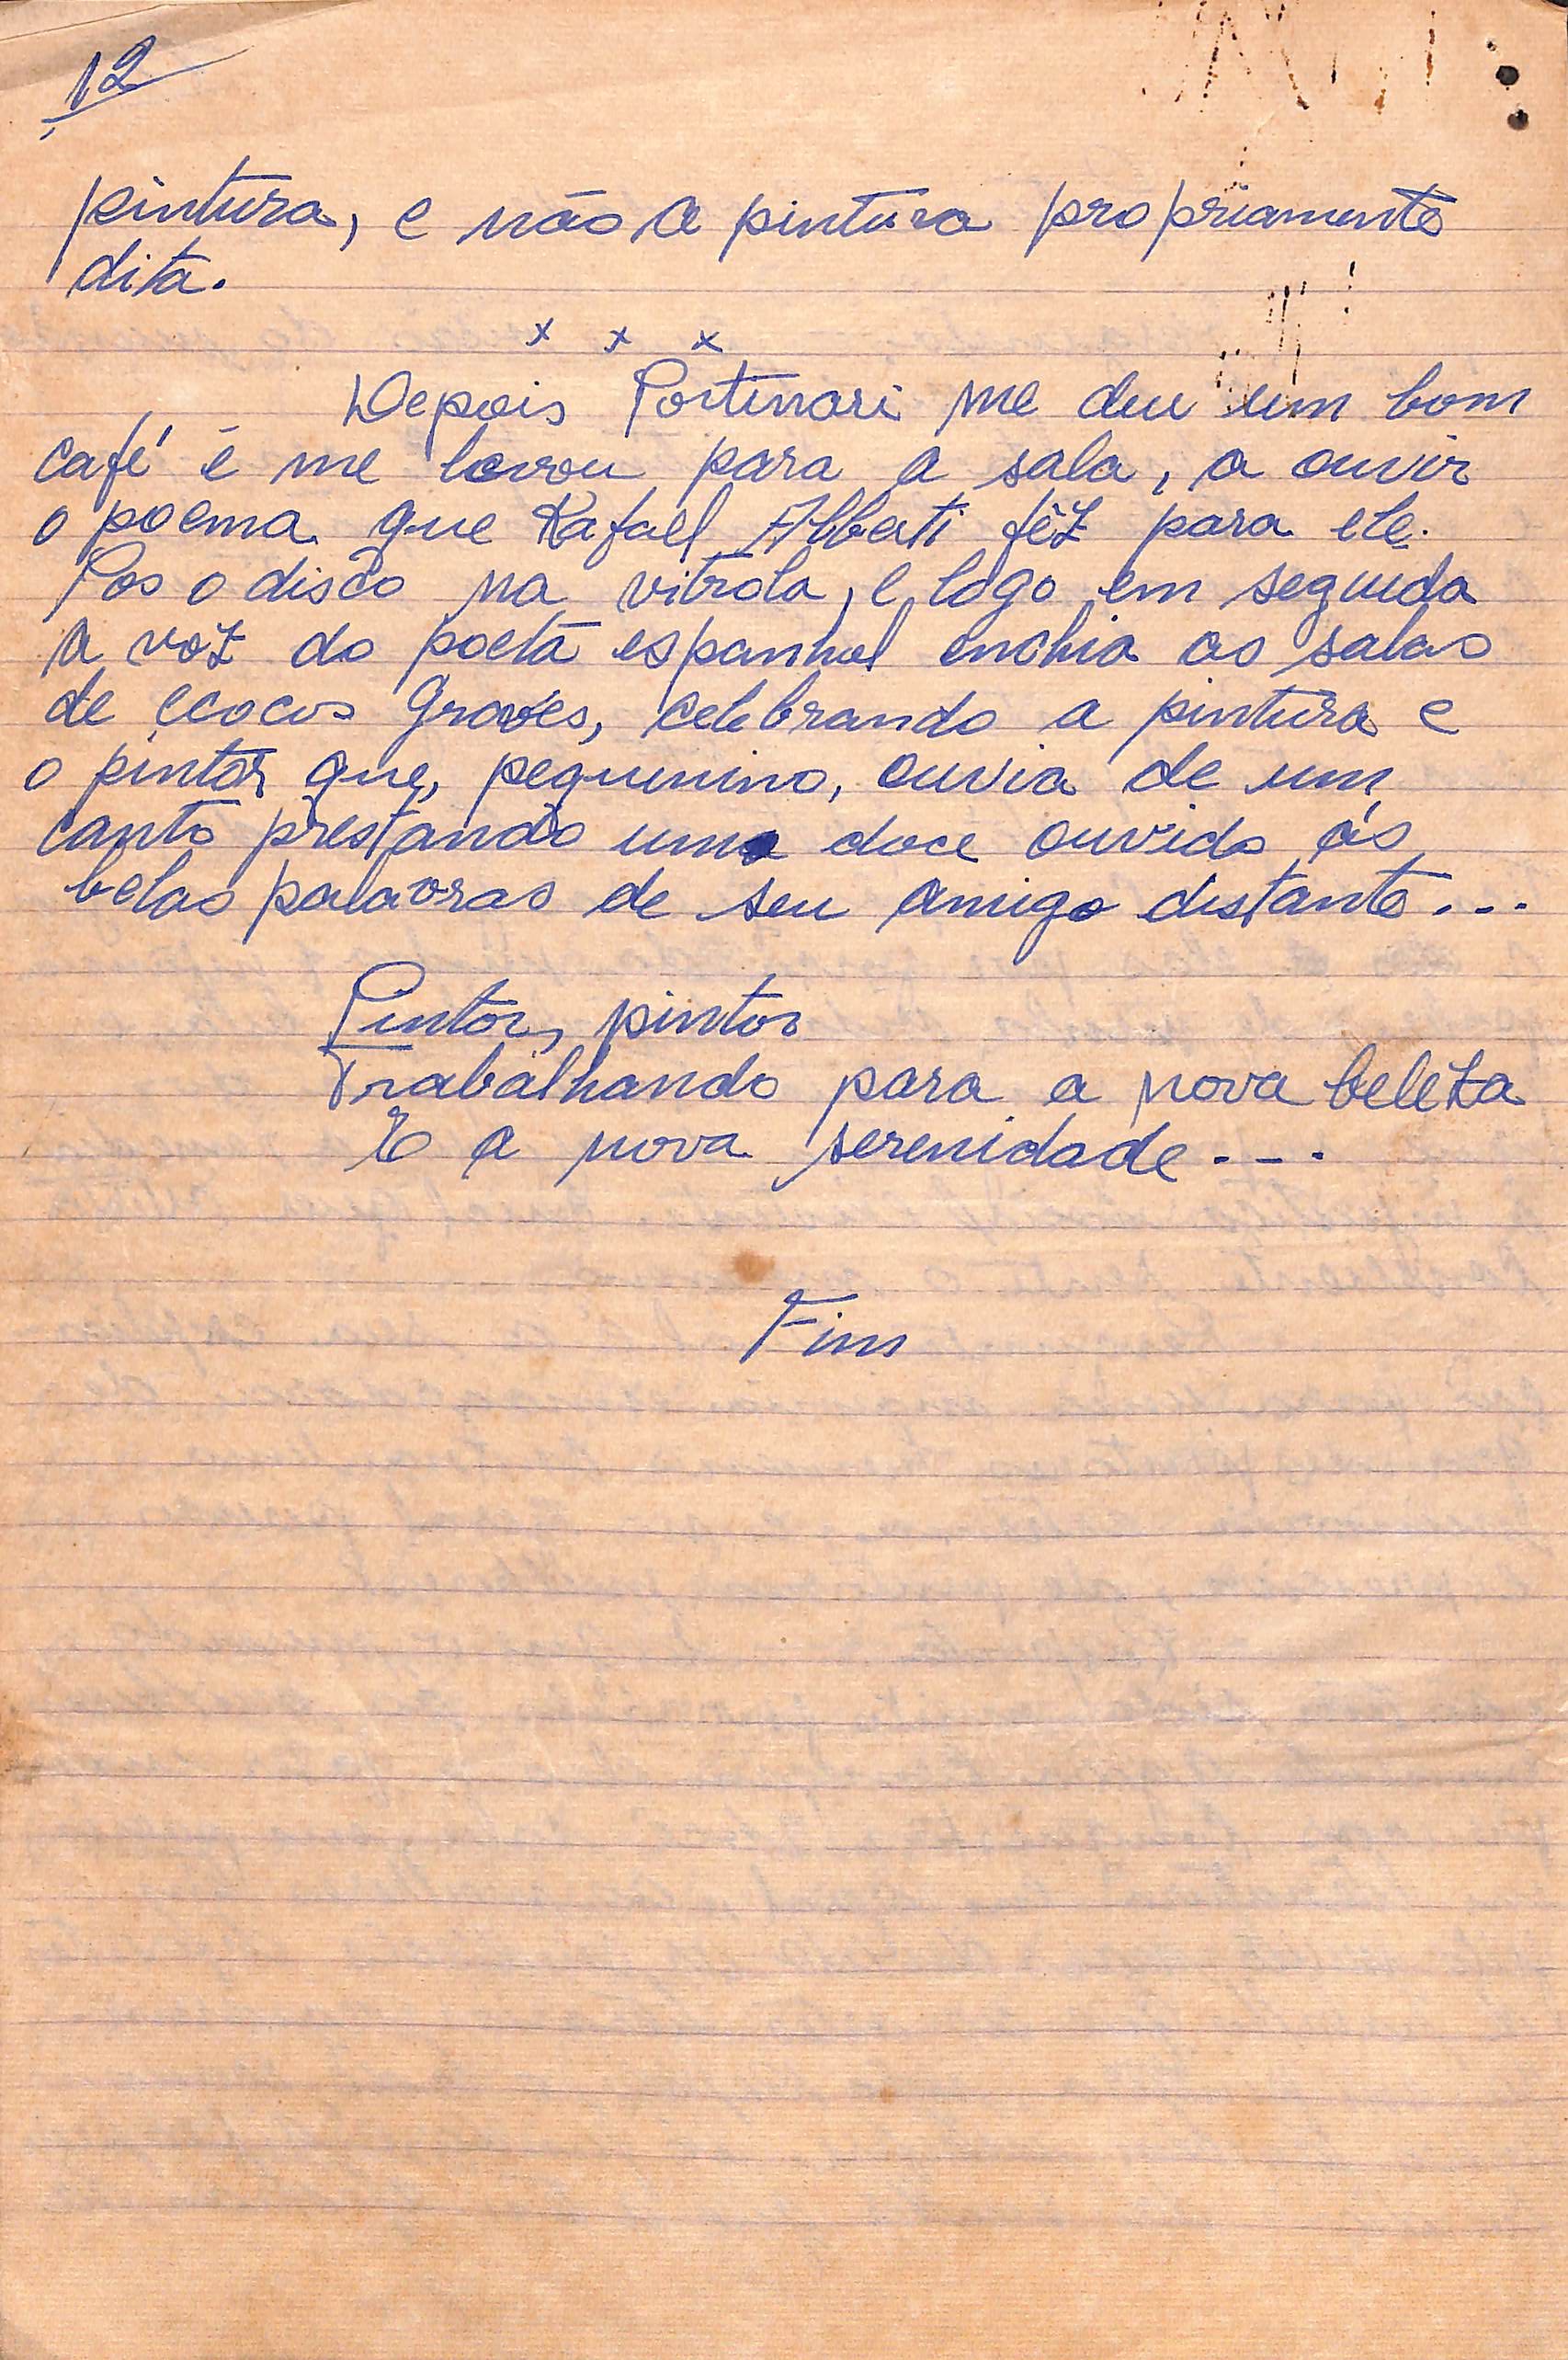 12
pintura, e não a pintura propriamente
dita.
x x x
Depois Portinari me deu um bom
café e me levou para a sala, a ouvir
o poema que Rafael Alberti fêz para ele.
Pos o disco na vitrola, e logo em seguida
a voz do poeta espanhol enchia as salas
de ecocos graves, celebrando a pintura e
o pintor que, pequenino, ouvia de um
canto prestando um doce ouvido ás
belas palavras de seu amigo distante...
Pintor, pintor
Trabalhando para a nova beleza
E a nova serenidade...
Fim